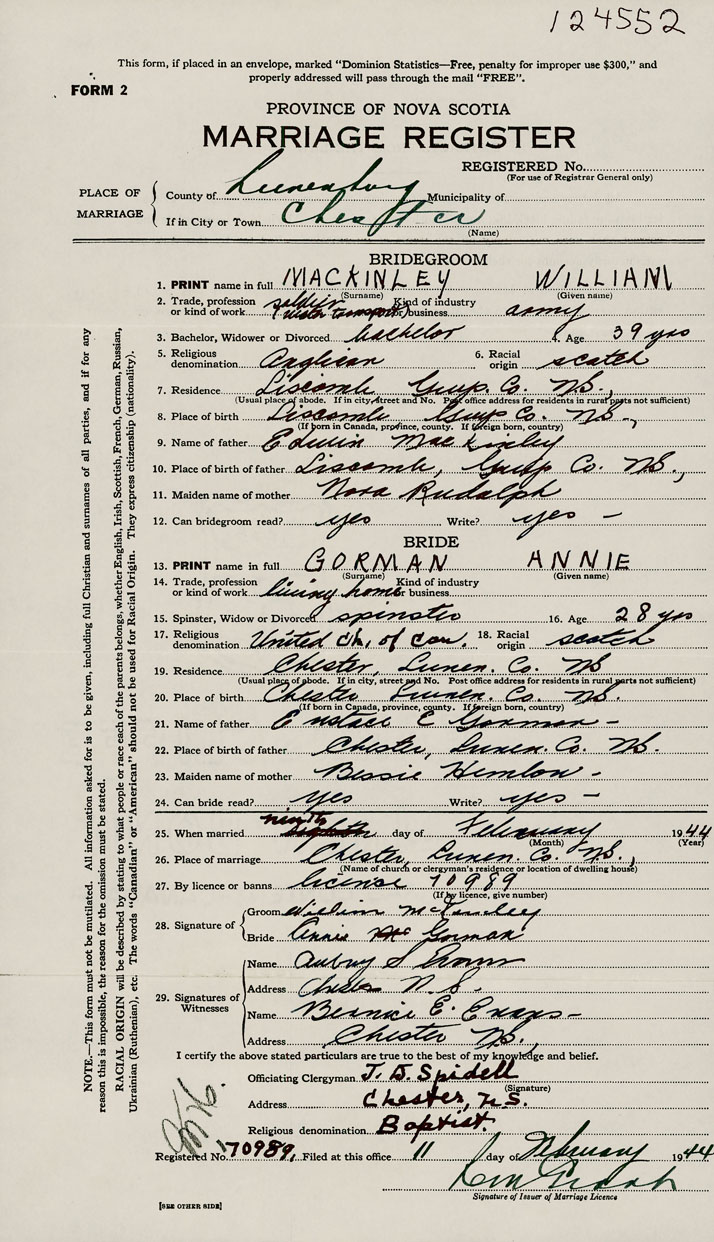 124552
This form, if placed in an envelope, marked "Dominion Statistics—Free, penalty for improper use $300," and
properly addressed will pass through the mail "FREE".
FORM 2
PROVINCE OF NOVA SCOTIA
MARRIAGE REGISTER
REGISTERED No.
(For use of Registrar General only)
PLACE OF MARRIAGE
County of Lunenburg Municipality of
If in City or Town Chester
(Name)
BRIDEGROOM
1. PRINT name in full MACKINLEY WILLIAM
(Surname) (Given name)
2. Trade, profession or kind of work soldier Kind of industry or business army
3. Bachelor, Widower or Divorced bachelor 4. Age 39 yrs
5. Religious denomination Anglican 6. Racial origin scotch
7. Residence Liscomb Guys. Co. N.S.,
(Usual place of abode. If in city, street and No. Post office address for residents in rural parts not sufficient)
8. Place of birth Liscomb Guys Co. N.S.,
(If born in Canada, province, county. If foreign born, country)
9. Name of father Edwin MacKinley
10. Place of birth of father Liscomb, Guys Co. N.S.,
11. Maiden name of mother Nora Rudolph
12. Can bridegroom read? yes Write? yes –
BRIDE
13. PRINT name in full GORMAN ANNIE
(Surname) (Given name)
14. Trade, profession or kind of work living home Kind of industry or business
15. Spinster, Widow or Divorced spinster 16. Age 28 yrs
17. Religious denomination United Ch. of Can. 18. Racial origin scotch
19. Residence Chester, Lunen. Co. NS
(Usual place of abode. If in city, street and No. Post office address for residents in rural parts not sufficient)
20. Place of birth Chester Lunen. Co. N.S.
(If born in Canada, province, county. If foreign born, country)
21. Name of father E Gorman –
22. Place of birth of father Chester, Lunen. Co. N.S.
23. Maiden name of mother Bessie –
24. Can bride read? yes Write? yes –
25. When married ninth day of February 1944
(Month) (Year)
26. Place of marriage Chester, Lunen. Co. N.S.,
(Name of church or clergyman's residence or location of dwelling house)
27. By licence or banns license 70989
(If by licence, give number)
28. Signature of Groom William McKinley
Bride Annie Gorman
29. Signatures of Witnesses
Name
Address Chester N.S.
Name Bernice E. Evans –
Address Chester N.S.,
I certify the above stated particulars are true to the best of my knowledge and belief.
Officiating Clergyman J. D. Spidell
(Signature)
Address Chester, N.S.
Religious denomination Baptist.
Registered No. 70989. Filed at this office 11 day of February 1944
Signature of Issuer of Marriage Licence
[SEE OTHER SIDE]
NOTE.—This form must not be mutilated. All information asked for is to be given, including full Christian and surnames of all parties, and if for any
reason this is impossible, the reason for the omission must be stated.
RACIAL ORIGIN will be described by stating to what people or race each of the parents belongs, whether English, Irish, Scottish, French, German, Russian,
Ukrainian (Ruthenian), etc. The words "Canadian" or "American" should not be used for Racial Origin. They express citizenship (nationality).